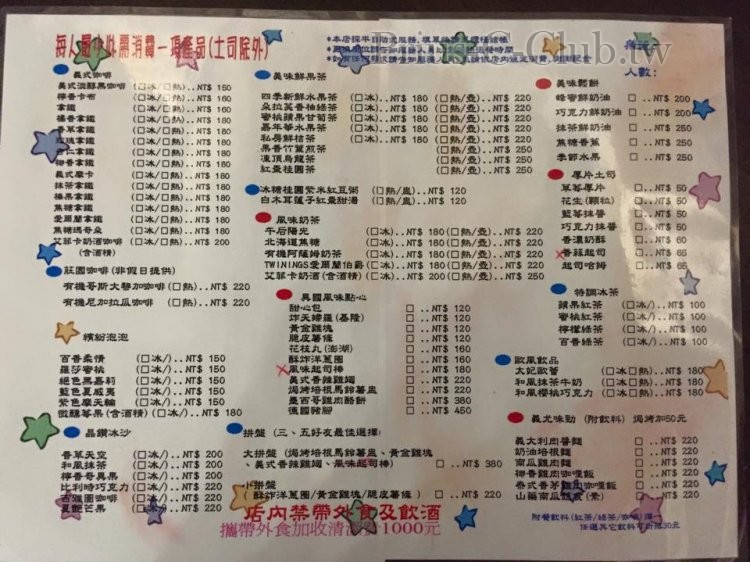 每人最低消費一項產品(土司除外)
人數:
義式咖啡
義式濃醇黑咖啡 (□冰/□熱)..NT$ 150
榛香卡布 (□冰/□熱)..NT$ 160
拿鐵 (□冰/□熱)..NT$ 160
香草拿鐵 (□冰/□熱)..NT$ 180
義式摩卡 (□冰/□熱)..NT$ 180
抹茶拿鐵 (□冰/□熱)..NT$ 180
焦糖拿鐵 (□冰/□熱)..NT$ 180
愛爾蘭拿鐵 (□冰/□熱)..NT$ 180
焦糖瑪奇朵 (□冰/□熱)..NT$ 180
艾菲卡奶酒咖啡 (□冰/□熱)..NT$ 200
(含酒精)
莊園咖啡(非假日提供)
有機哥斯大黎加咖啡 (□熱)..NT$ 220
有機尼加拉瓜咖啡 (□熱)..NT$ 220
繽紛泡泡
百香柔情 (□冰/)..NT$ 150
羅莎蜜桃 (□冰/)..NT$ 150
絕色黑嘉莉 (□冰/)..NT$ 150
藍色夏威夷 (□冰/)..NT$ 150
紫色摩天輪 (□冰/)..NT$ 150
微醺莓果(含酒精)(□冰/)..NT$ 180
晶鑽冰沙
香草天空 (□冰/)..NT$ 200
和風抹茶 (□冰/)..NT$ 200
檸香奇異果 (□冰/)..NT$ 200
比利時巧克力 (□冰/)..NT$ 220
芒果 (□冰/)..NT$ 220
美味鮮果茶
四季新鮮水果茶 (□冰)..NT$ 180 (□熱/壺)..NT$ 220
朵拉芙香柚綠茶 (□冰)..NT$ 180 (□熱/壺)..NT$ 220
蜜桃蘋果甘菊茶 (□冰)..NT$ 180 (□熱/壺)..NT$ 220
嘉年華水果茶 (□冰)..NT$ 180 (□熱/壺)..NT$ 220
私房鮮桔茶 (□冰)..NT$ 180 (□熱/壺)..NT$ 220
果香竹蔗煎茶 (□熱/壺)..NT$ 250
凍頂烏龍茶 (□熱/壺)..NT$ 250
紅棗桂圓茶 (□熱/壺)..NT$ 250
冰糖桂圓紫米紅豆粥 (□熱/盅)..NT$ 120
白木耳蓮子紅棗甜湯 (□熱/盅)..NT$ 120
風味奶茶
午后陽光 (□冰)..NT$ 180(□熱/壺)..NT$ 220
北海道焦糖 (□冰)..NT$ 180(□熱/壺)..NT$ 220
有機阿薩姆奶茶 (□冰)..NT$ 180(□熱/壺)..NT$ 220
TWININGS愛爾蘭伯爵 (□冰)..NT$ 180(□熱/壺)..NT$ 220
艾菲卡奶酒(含酒精) (□冰)..NT$ 200(□熱/壺)..NT$ 250
異國風味點心
甜心包 □ ..NT$ 120
炸天婦羅(基隆) □ ..NT$ 120
黃金雞塊 □ ..NT$ 120
脆皮薯條 □ ..NT$ 120
花枝丸(澎湖) □ ..NT$ 160
酥炸洋蔥圈 □ ..NT$ 160
風味起司棒 □ ..NT$ 180
美式香辣雞翅 □ ..NT$ 180
焗烤培根馬鈴薯盅 □ ..NT$ 180
墨西哥雞肉酪餅 □ ..NT$ 200
德國豬腳 □ ..NT$ 450
拼盤 (三、五好友最佳選擇)
大拼盤 (焗烤培根馬鈴薯盅、黃金雞塊
、美式香辣雞翅、風味起司棒) □ ..NT$ 380
小拼盤
(酥炸洋蔥圈/黃金雞塊/脆皮薯條 ) □ ..NT$ 220
店內禁帶外食及飲酒
攜帶外食加收清潔費1000元
美味鬆餅
蜂蜜鮮奶油 □ ..NT$ 200
巧克力鮮奶油 □ ..NT$ 200
抹茶鮮奶油 □ ..NT$ 250
焦糖香蕉 □ ..NT$ 250
季節水果 □ ..NT$ 250
厚片土司
草莓厚片 □ ..NT$ 50
花生(顆粒) □ ..NT$ 50
藍莓抹醬 □ ..NT$ 50
巧克力抹醬 □ ..NT$ 50
香濃奶酥 □ ..NT$ 60
香蒜起司 □ ..NT$ 65
起司哈姆 □ ..NT$ 65
特調冰茶
蘋果紅茶 (□冰/)..NT$ 100
蜜桃紅茶 (□冰/)..NT$ 100
檸檬綠茶 (□冰/)..NT$ 100
百香綠茶 (□冰/)..NT$ 100
歐風飲品
太妃歐蕾 (□冰□熱)..NT$ 180
和風抹茶牛奶 (□冰□熱)..NT$ 180
和風櫻桃巧克力 (□冰□熱)..NT$ 180
義尤味動 (附飲料) 焗烤加50元
義大利肉醬麵 □ ..NT$ 220
奶油培根麵 □ ..NT$ 220
南瓜雞肉麵 □ ..NT$ 220
椰香雞肉咖哩飯 □ ..NT$ 220
泰式香茅雞肉咖哩飯 □ ..NT$ 220
山藥南瓜(素) □ ..NT$ 220
附餐飲料(紅茶/綠茶/咖啡)擇一
任選其它飲料可折抵30元